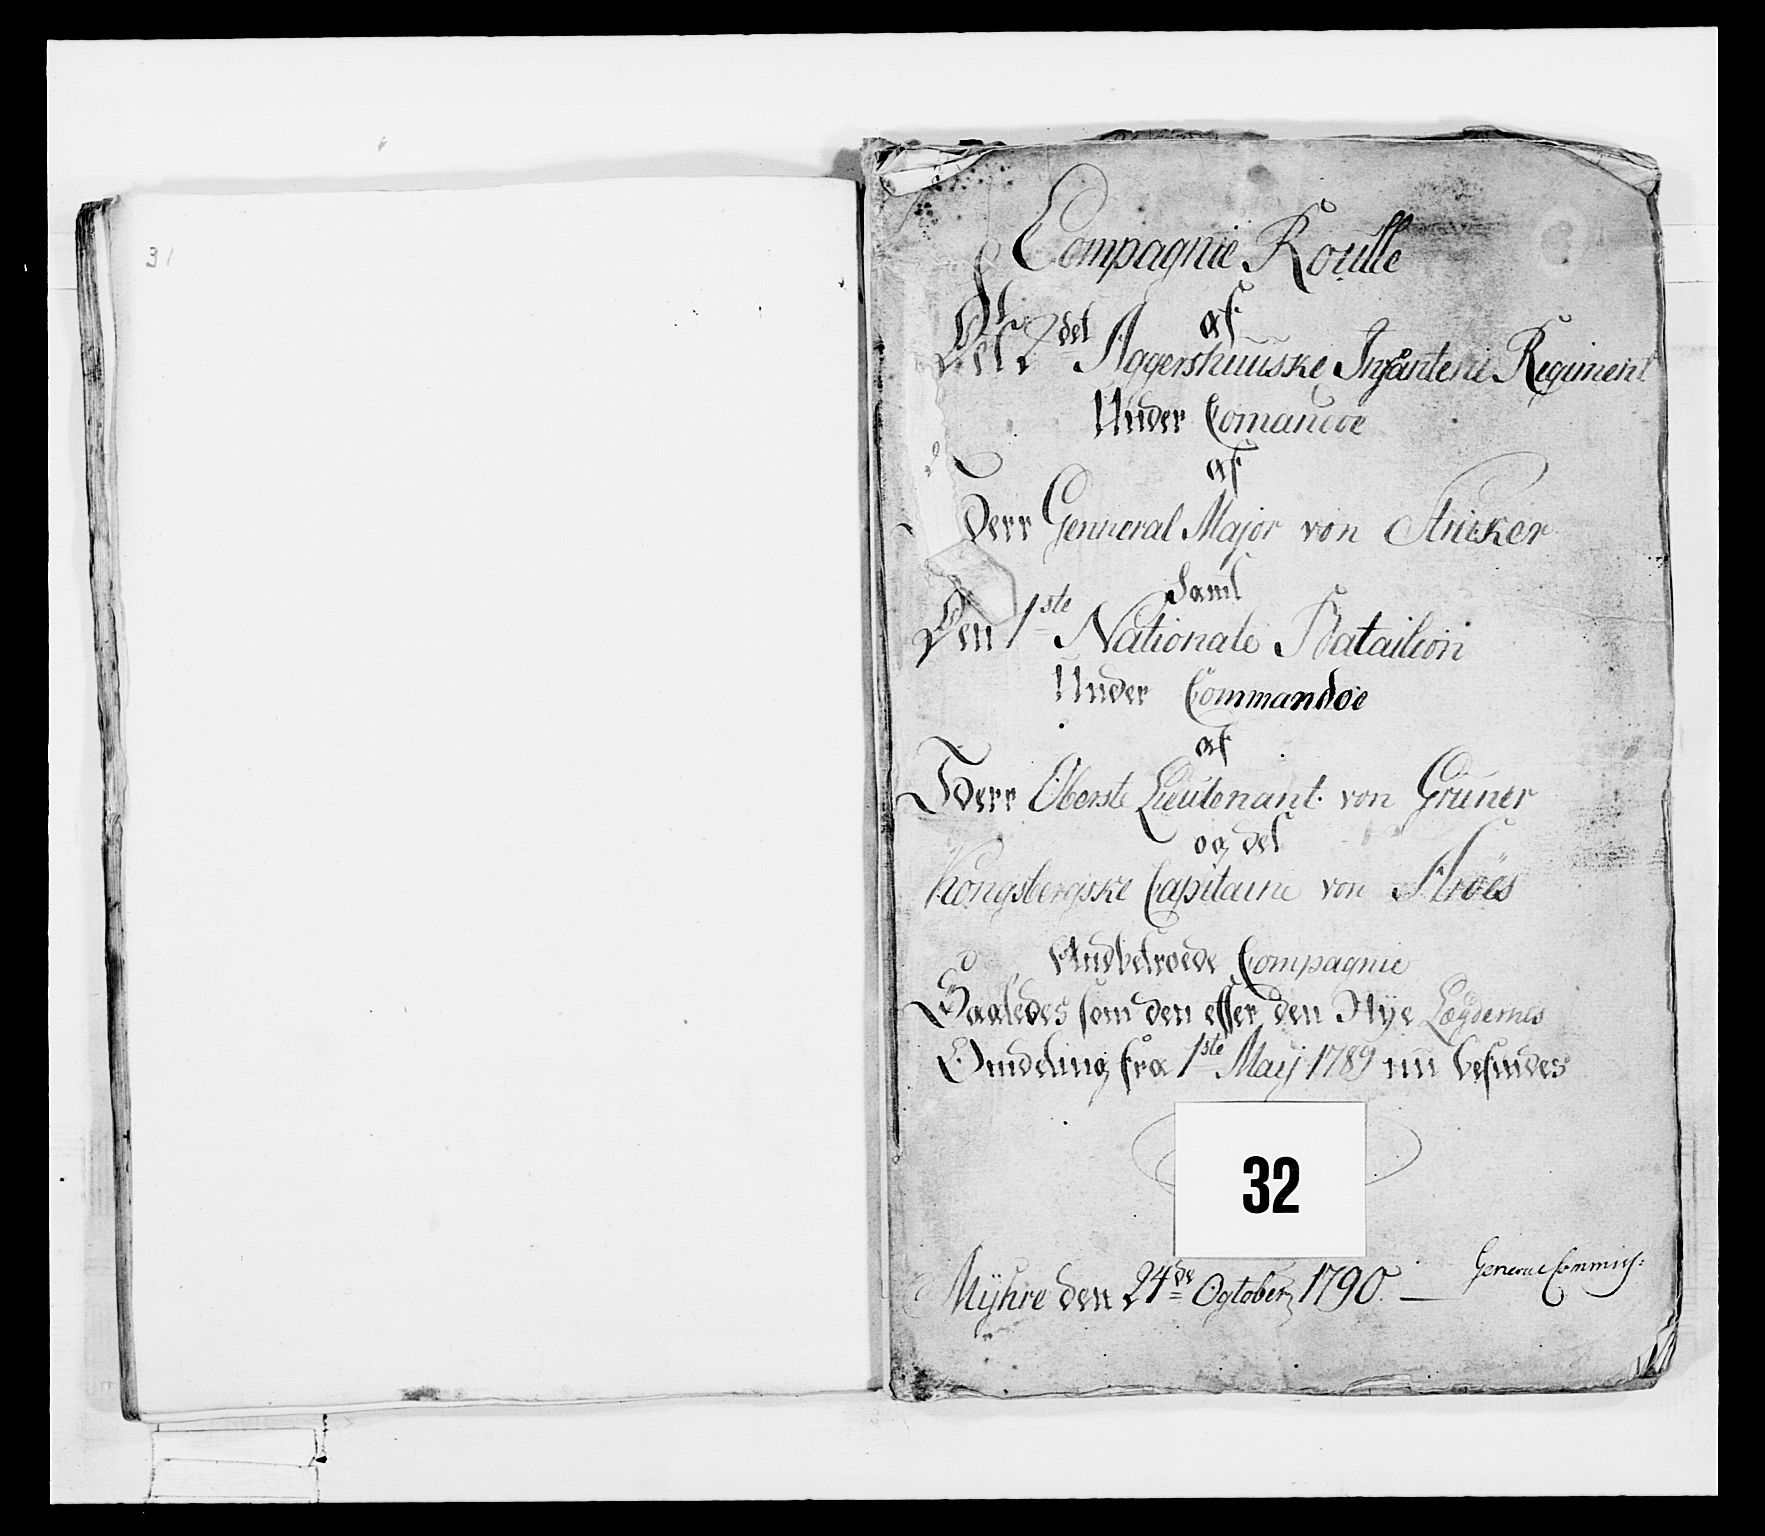 31
Compagnie Roulle
af
Det 2det Aggershuuske Infanterie Regiment
Under Comandoe
af
Herr Genneral Major von Stricker
Samt
Den 1ste Nationale Bataillon
Under Commandoe
af
Herr Oberste Lieutenant von Grüner
og det
Kongsbergske Capitaine von
Andbetroede Compagnie
Saaledes som den efter den Nye Lægdernes
Inddeling fra 1ste Maij 1789 nu befindes
32
General Commiss:
Mÿhre den 24de Ogtober 1790.